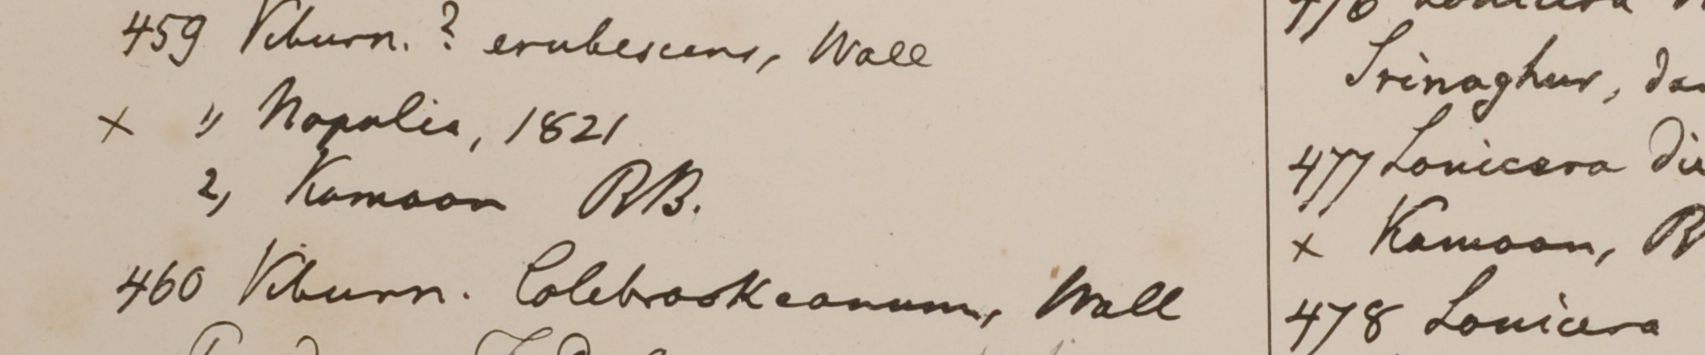 459 Viburn. ? erubescens, Wall
x 1, Napalia, 1821
2, Kamaon RB.
460 Viburn. Colebrookeanum, Wall
Lonicera
Srinaghur,
477 Lonicera
x Kamaon,
478 Lonicera